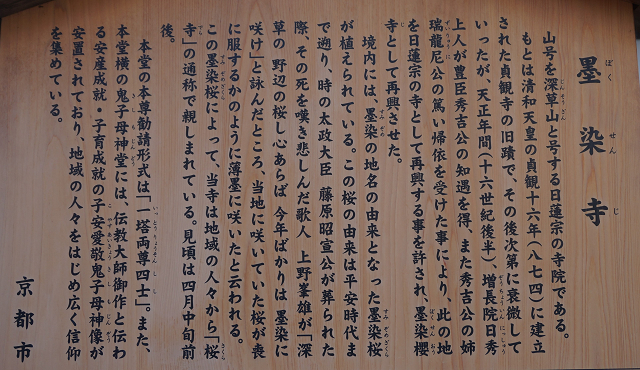 墨染寺
ぼくせんじ
山号を深草山と号する日蓮宗の寺院である。
もとは清和天皇の貞観十六年(八七四)に建立
された貞観寺の旧蹟で、その後次第に衰微して
いったが、天正年間(十六世紀後半)、増長院日秀
上人が豊臣秀吉公の知遇を得、また秀吉公の姉
瑞龍尼公の篤い帰依を受けた事により、此の地
を日蓮宗の寺として再興する事を許され、墨染櫻
寺として再興させた。
境内には、墨染の地名の由来となった墨染桜
が植えられている。この桜の由来は平安時代ま
で遡り、時の太政大臣 藤原昭宣公が葬られた
際、その死を嘆き悲しんだ歌人 上野峯雄が「深
草の 野辺の桜し心あらば 今年ばかりは 墨染に
咲け」と詠んだところ、当地に咲いていた桜が喪
に服するかのように薄墨に咲いたと云われる。
この墨染桜によって、当寺は地域の人々から「桜
寺」の通称で親しまれている。見頃は四月中旬前
後。
本堂の本尊勧請形式は「一塔両尊四士」。また、
本堂横の鬼子母神堂には、伝教大師御作と伝わ
る安産成就・子育成就の子安愛敬鬼子母神像が
安置されており、地域の人々をはじめ広く信仰
を集めている。
京都市